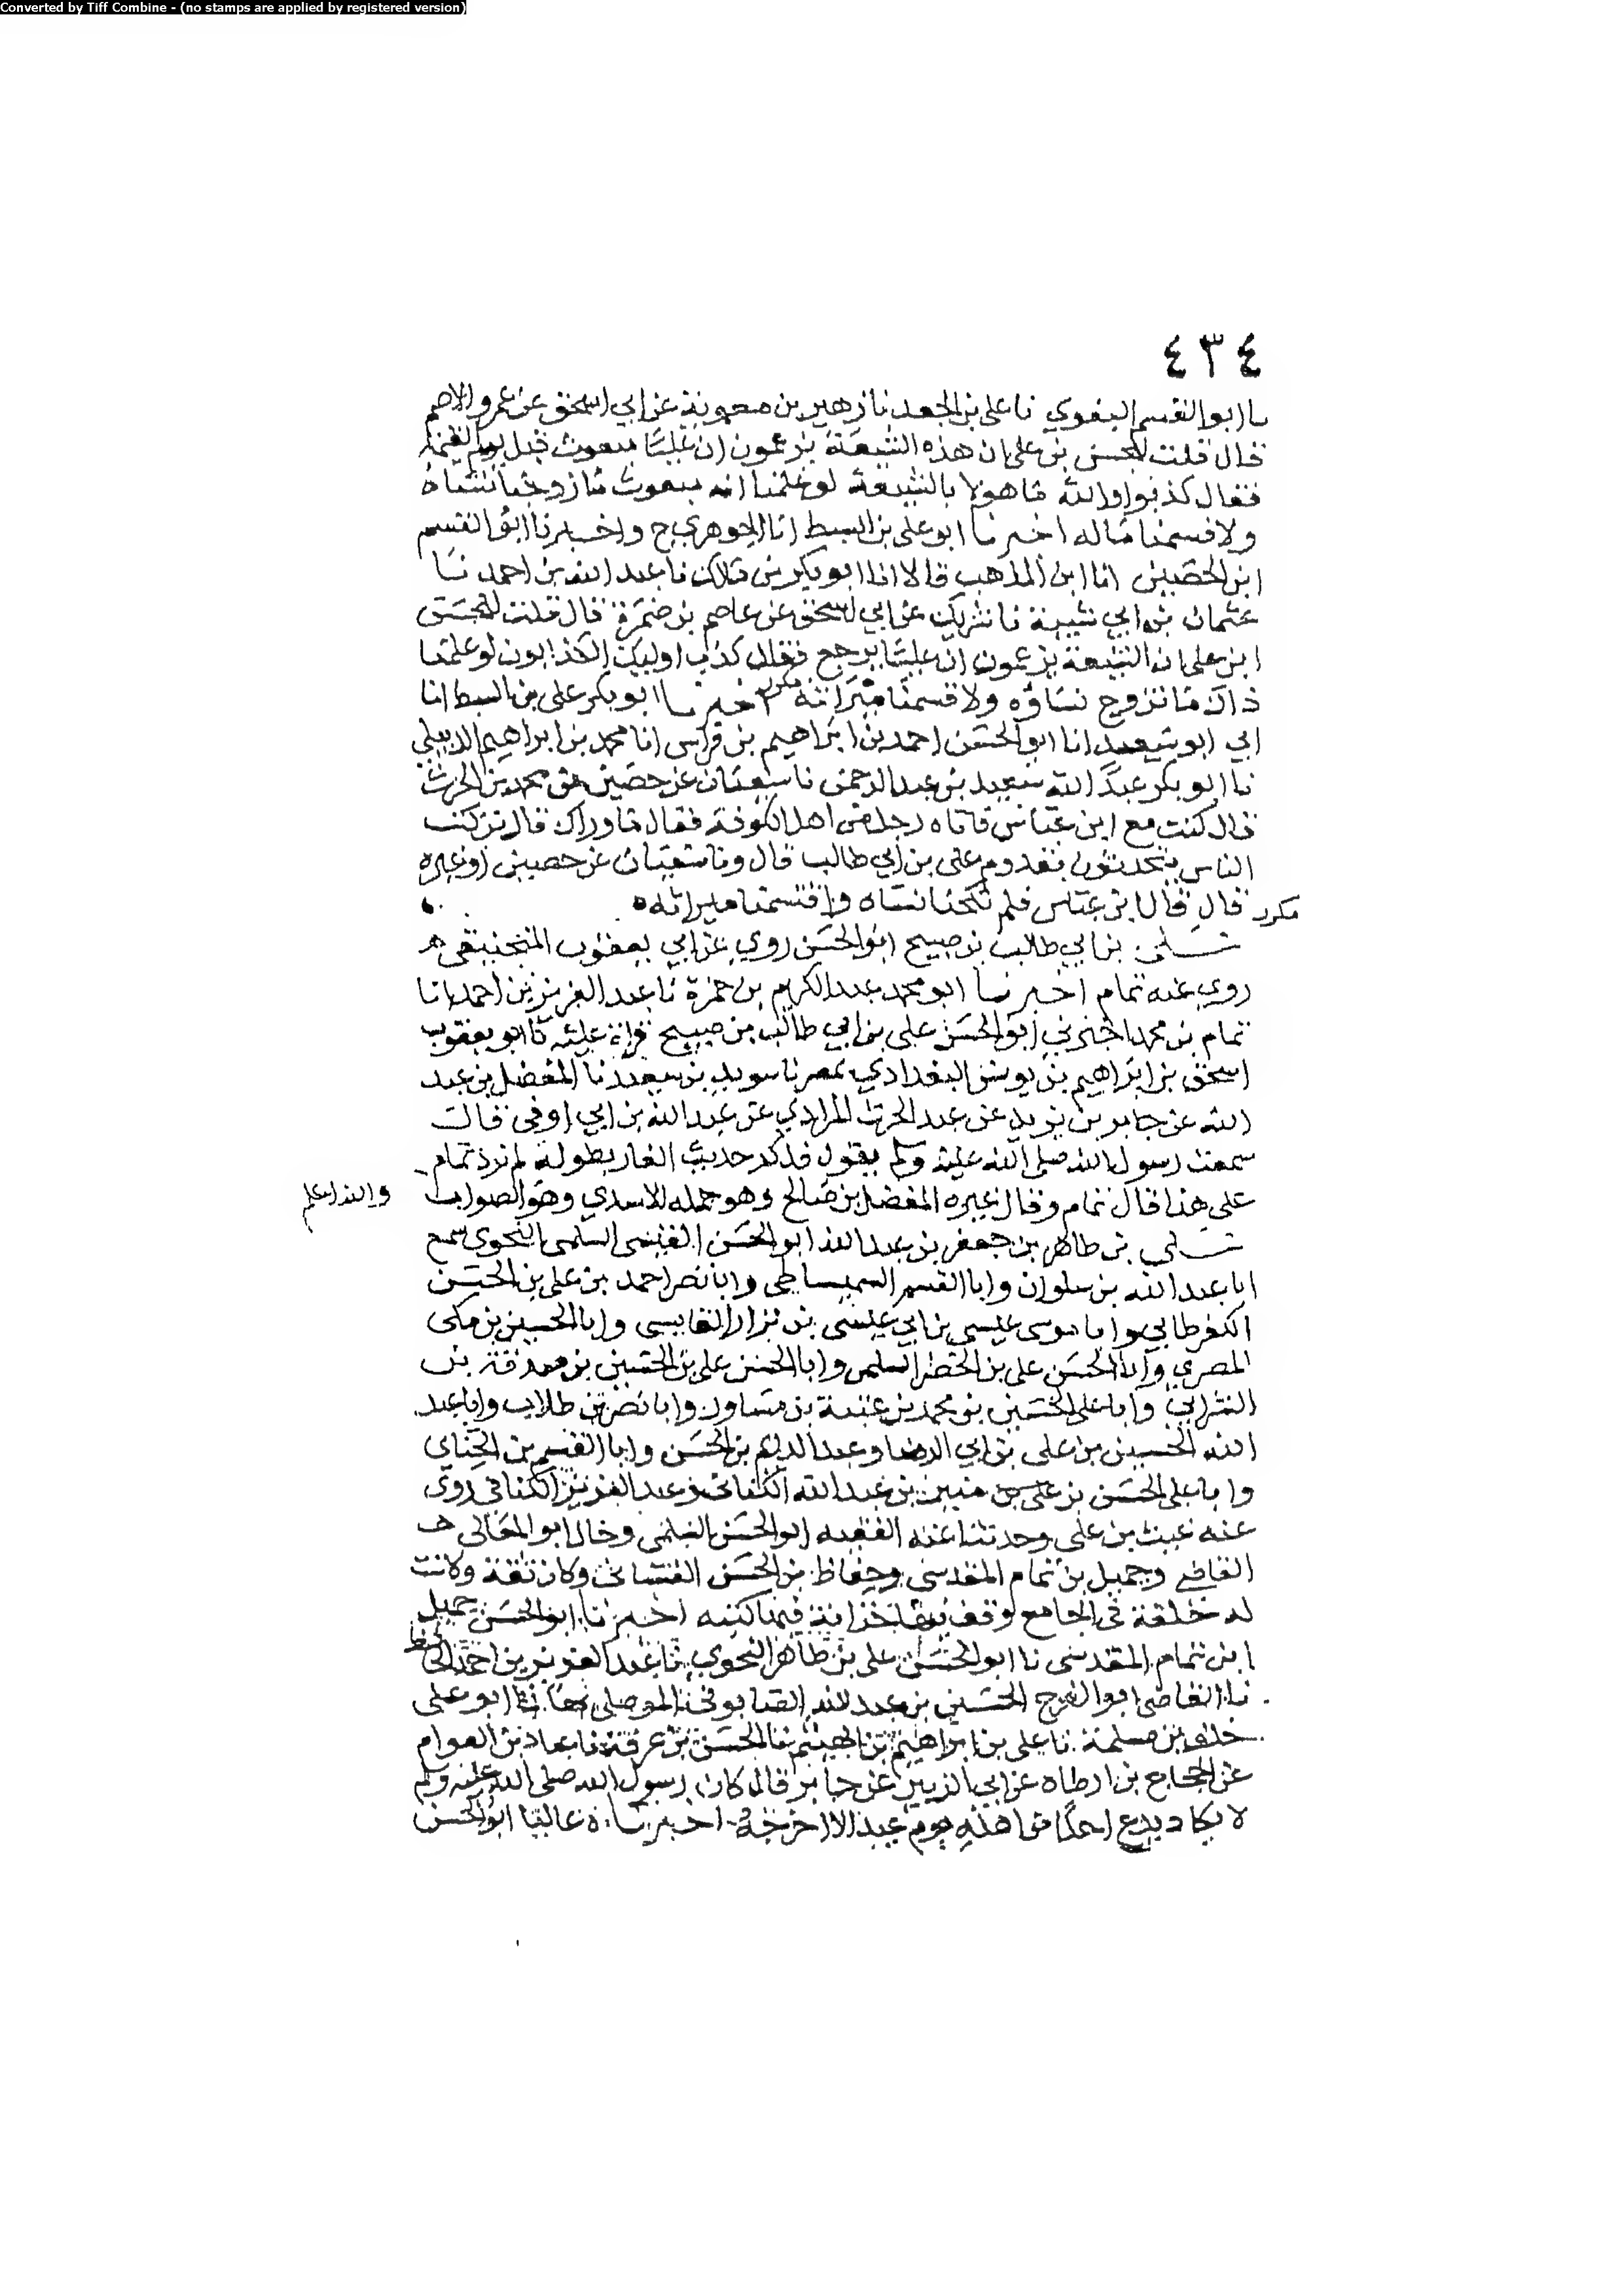 Converted by Tiff Combine - (no stamps are applied by registered version)
٤٣٤
نا ابو القسم البغوي نا على بن الجعد نا زهير بن معوية عن ابي اسحق عن عمرو الاصم
قال قلت للحسن بن على ان هذه الشيعة يزعمون ان عليا مبعوث قبل يوم القيمة
فقال كذبوا والله ما هولا بالشيعة لو علمنا انه مبعوث ما زوجنا نساه
ولا قسمنا ماله اخبرنا ابو على بن السبط انا الجوهري ح واخبرنا ابو القسم
ابن الحصين انا ابن المذهب قالا انا ابو بكر بن مالك نا عبد الله بن احمد نا
عثمان بن ابي شيبة نا شريك عن ابي اسحق عن عاصم بن ضمرة قال قلت للحسن
ابن على ان الشيعة يزعمون ان عليا يرجع فقال كذب اوليك الكذابون لو علمنا
ذاك ما تزوج نساؤه ولا قسمنا ميراثه مكرر اخبرنا ابو بكر على بن السبط انا
ابي ابو سعيد انا ابو الحسن احمد بن ابراهيم بن فراس انا محمد بن ابراهيم الديبلي
نا ابو بكر عبد الله سعيد بن عبد الرحمن نا سفيان عن حصين عن محمد بن الحرث
قال كنت مع ابن عباس فاتاه رجل من اهل الكوفة فقال ما وراك قال تركت
الناس يتحدثون بقدوم على بن ابي طالب قال ونا سفيان عن حصين او غيره
مكرر قال قال ابن عباس فلم نكحنا نساه واقتسمنا ميراثه
على بن ابي طالب بن صبيح ابو الحسن روي عن ابي يعقوب المنجنيقى
روي عنه تمام اخبرنا ابو محمد عبد الكريم بن حمزة نا عبد العزيز بن احمد انا
تمام بن محمد اخبرني ابو الحسن على بن ابي طالب بن صبيح قراة عليه نا ابو يعقوب
اسحق بن ابراهيم بن يونس البغدادي بمصر نا سويد بن سعيد نا المفضل بن عبد
الله عن جابر بن يزيد عن عبد الحرث المرادي عن عبد الله بن ابي اوفى قال
سمعت رسول الله صلى الله عليه وسلم يقول فذكر حديث الغار بطوله لم نزد تمام
على هذا قال تمام وقال غيره المفضل بن صالح وهو جمله الاسدي وهو الصواب والله اعلم
على بن طاهر بن جعفر بن عبد الله ابو الحسن القيسى السلمى النحوى سمع
ابا عبد الله بن سلوان وابا القسم السميساطى وابا نصر احمد بن على بن الحسن
الكفرطابي وابا موسى عيسى بن ابي عيسى بن نزار القابسى وابا الحسين بن مكى
المصري وابا الحسن على بن الخضر السلمى وابا الحسن على بن الحسين بن صدقة بن
الشرابي وابا على الحسين بن محمد بن عتبة بن مساور وابا نصر بن طلاب وابا عبد
الله الحسين بن على بن ابي الرضا وعبد الدايم بن الحسن وابا القسم بن الحناي
وابا على الحسن بن على بن منين بن عبد الله الكنانى وعبد العزيز الكنانى روى
عنه غيث بن على وحدثنا عنه الفقيه ابو الحسن السلمى وخالى ابو المعالى
القاضى وجميل بن تمام المقدسى وحفاظ بن الحسن الغسانى وكان ثقة وكانت
له حلقة في الجامع وقف فيها خزانة فيها كتبه اخبرنا ابو الحسن جميل
ابن تمام المقدسى نا ابو الحسن على بن طاهر النحوي نا عبد العزيز بن احمد الحافظ
نا القاضى ابو الفرج الحسين بن عبد الله الصابونى الموصلى بها نا ابو على
خلف بن مسلمة نا على بن ابراهيم بن الهيثم نا الحسن بن عرفة نا عباد بن العوام
عن الحجاج بن ارطاه عن ابي الزبير عن جابر قال كان رسول الله صلى الله عليه وسلم
لا يكاد يدع احدا من اهله يوم عيد الا اخرجه اخبرناه عاليا ابو الحسن